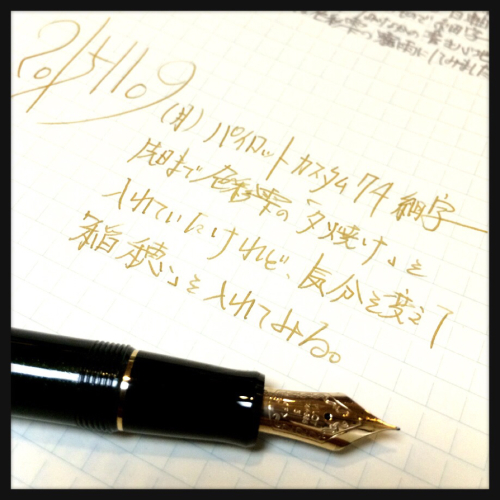 2015.11.09
(月) パイロットカスタム74 細字
先日まで色彩雫の「夕焼け」を
入れていたけれど、気分を変えて
「稲穂」を入れてみる。